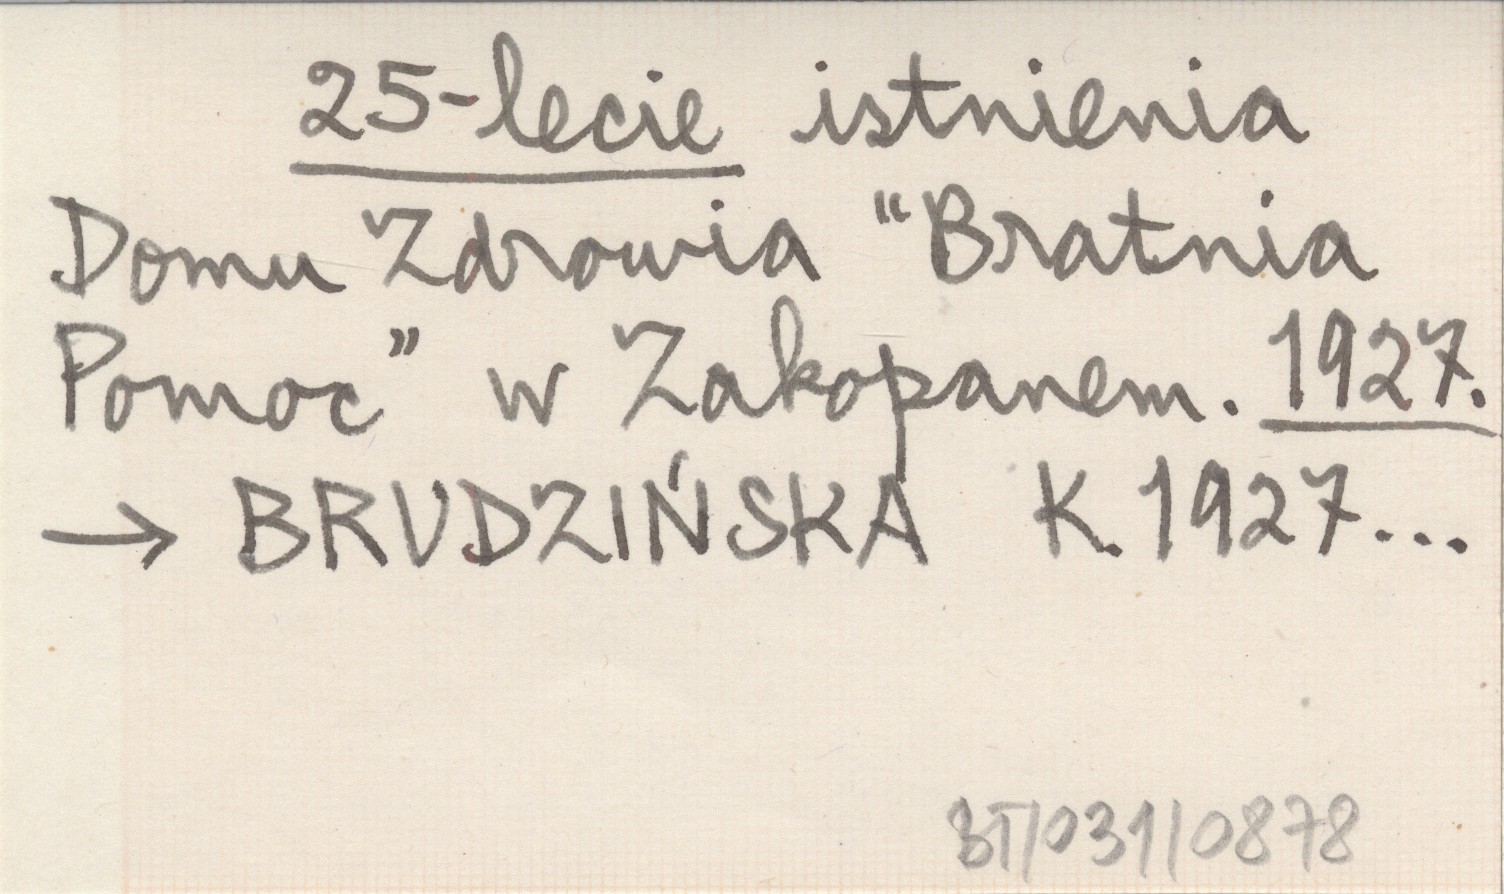 25-lecie istnienia
Domu Zdrowia "Bratnia
Pomoc" w Zakopanem. 1927.
→ BRUDZIŃSKA K. 1927...
BT/031/0878